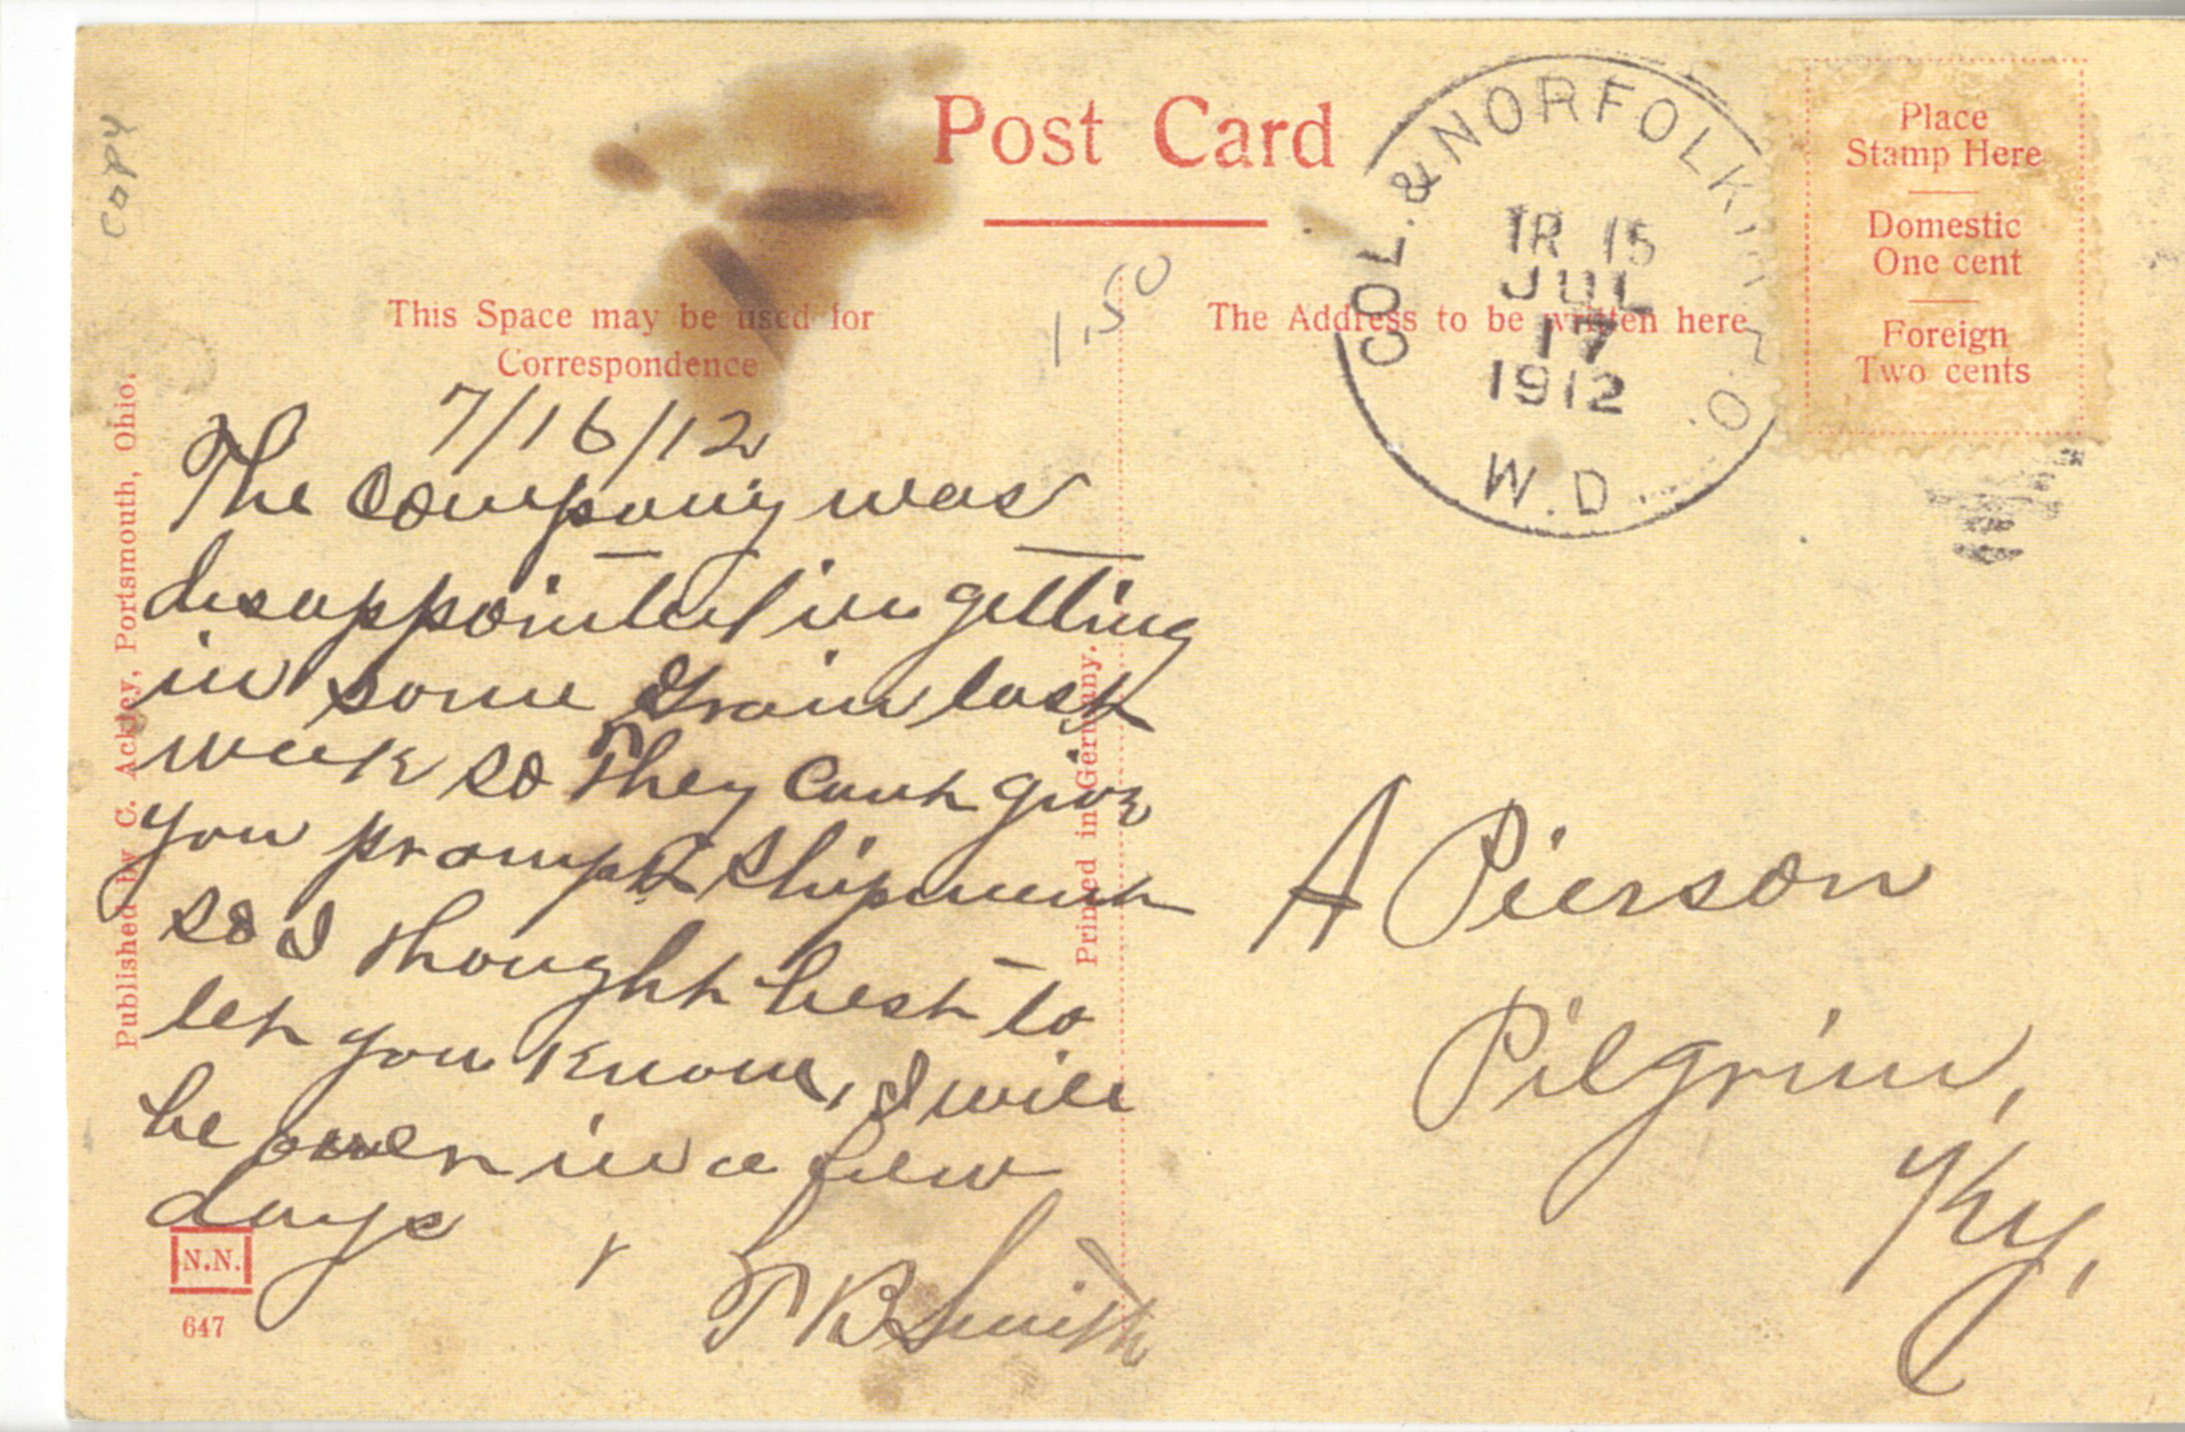 copy
Post Card
Place
Stamp Here
Domestic
One cent
Foreign
Two cents
COL. & NORFOLK
TR 15
JUL
17
1912
W.D.
1.50
This Space may be used for
Correspondence
The Address to be written here
7/16/12
The Company was
disappointed in getting
in some Grain last
week so They cant give
you prompt shipment
so I thought best to
let you know, I will
be over in a few
days
T B Smith
A Pierson
Pilgrim,
Ky,
Published by C. Ackley, Portsmouth, Ohio.
Printed in Germany.
N.N.
647